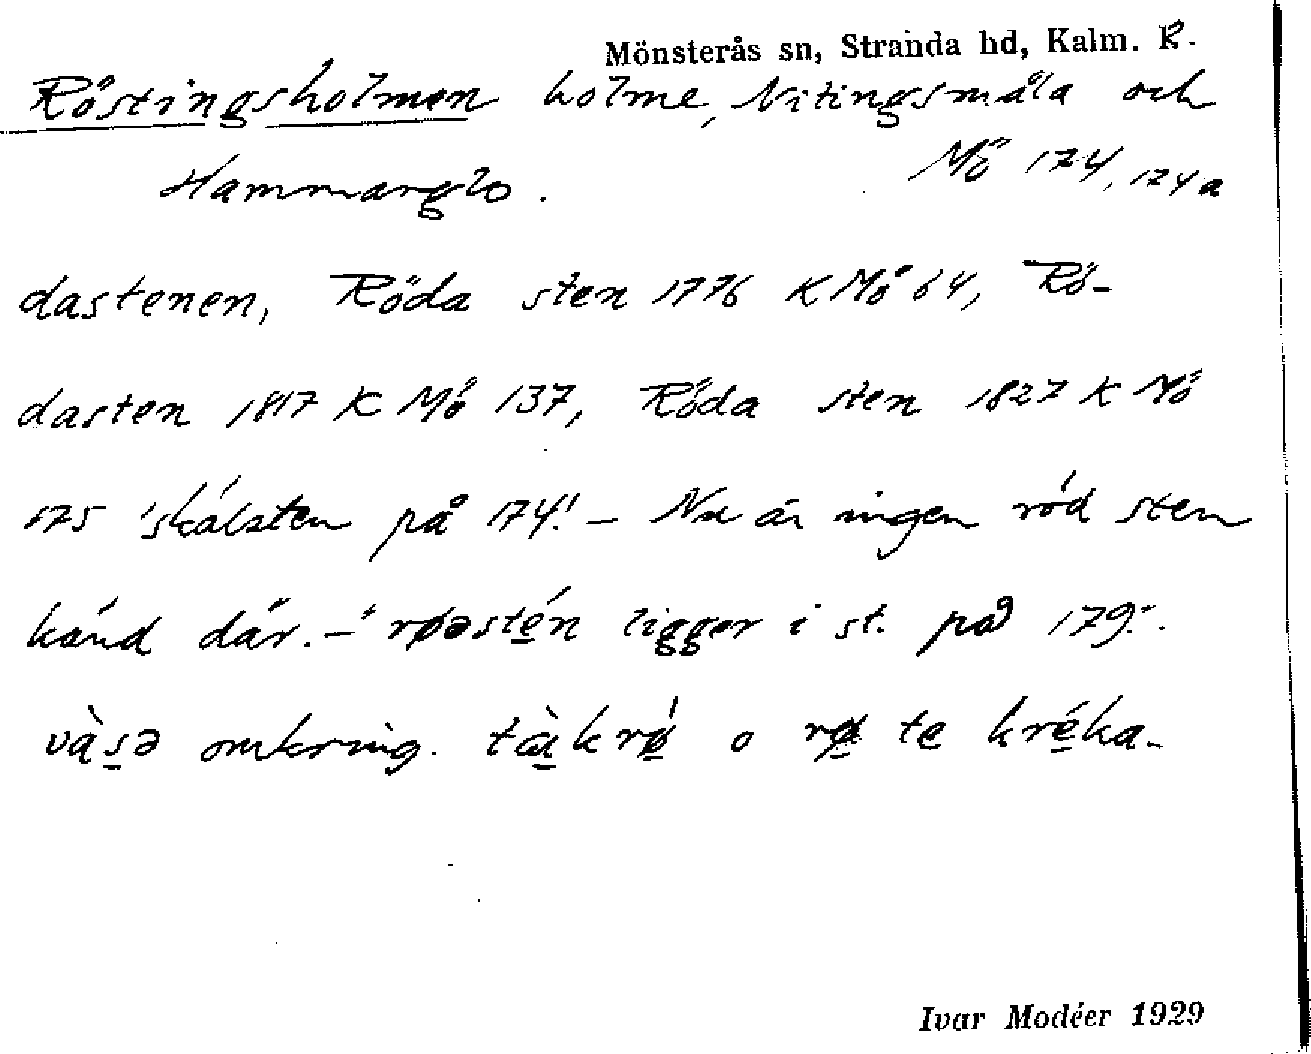 Mönsterås sn, Stranda hd, Kalm. R.
Röstingsholmen holme, Nitingsmåla och
Hammarglo. Mö 174, 174a
dastenen, Röda sten 1776 K Mö 64, Rö-
dasten 1817 K Mö 137, Röda sten 1827 K Mö
175 'skälsten på 174'. – Nu är ingen röd sten
känd där. – røəstén ligger i st. på 179.
vàsə omkring. tàkrǿ o rø te kréka.
Ivar Modéer 1929